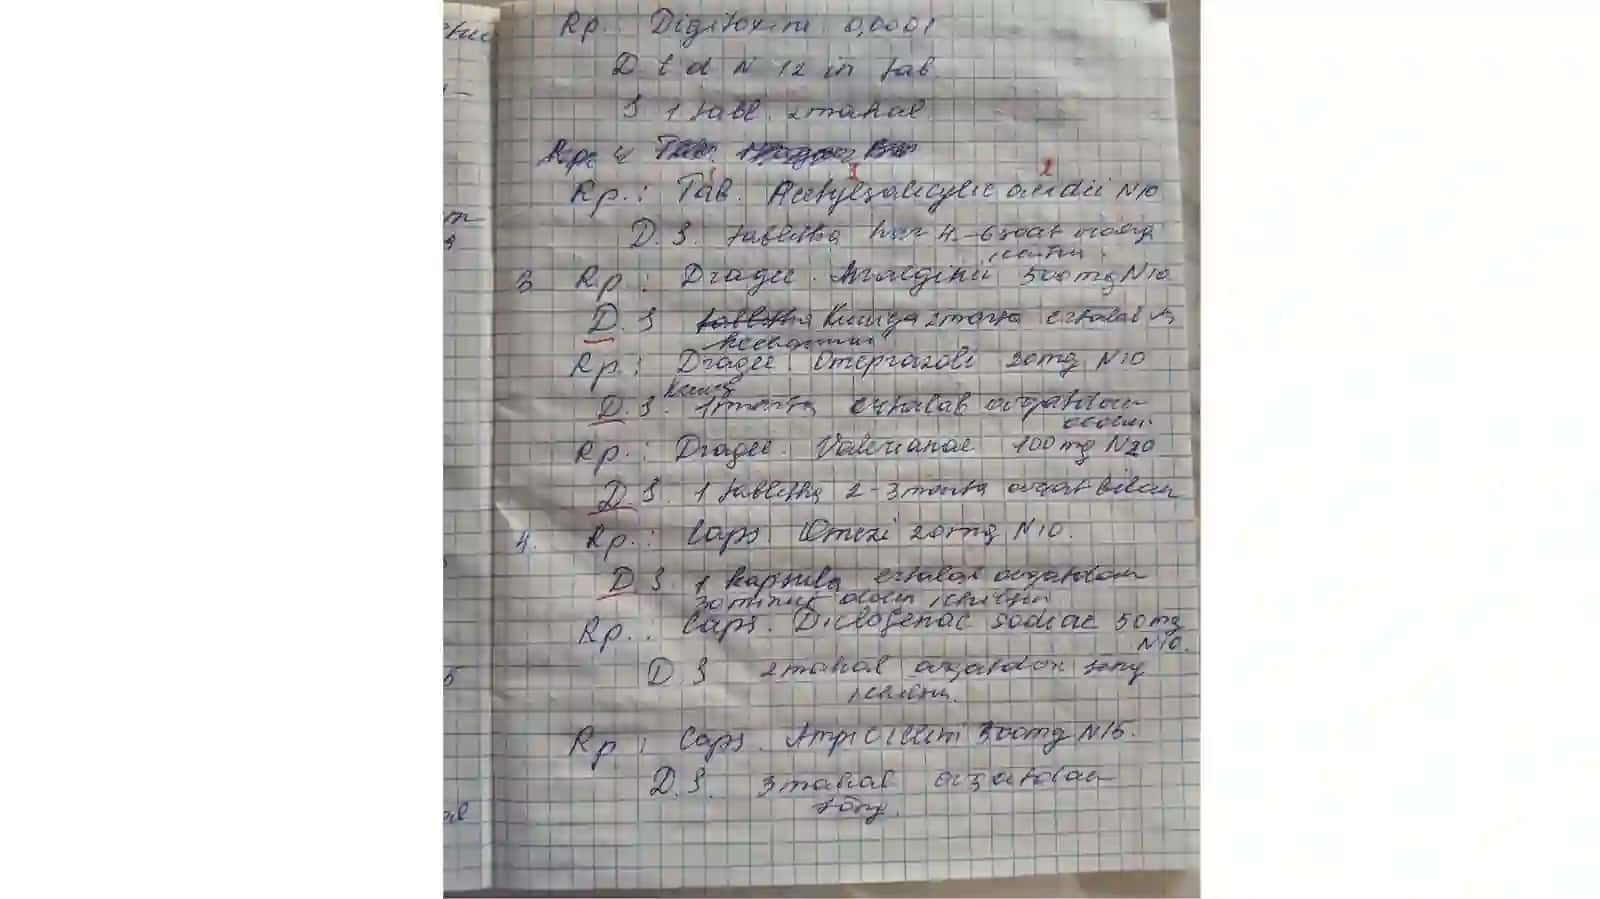 Rp. Digitoxini 0,0001
D t d N 12 in tab.
S 1 tabl. 2 mahal
Rp.: Tab. Acetylsalicylic acidii N10
D. S. tabletka har 4-6 soat orasiga
ichilsin.
3 Rp.: Dragee. Analginii 500mg N10
D. S Kuniga 2 marta ertalab va
kechqurun
Rp.: Dragee Omeprazoli 20mg N10
D. S. 1 marta ertalab ovqatdan
oldin.
Rp.: Dragee. Valerianae 100mg N20
D. S. 1 tabletka 2-3 marta ovqat bilan
4. Rp.: Caps. Omezi 20mg N10.
D S. 1 kapsula ertalab ovqatdan
30 minut oldin ichilsin
Rp.: Caps. Diclofenac sodiac 50mg
N10.
D. S 2 mahal ovqatdan song
ichilsin.
Rp: Caps. Ampicillini 500mg N15.
D. S. 3 mahal ovqatdan
song.